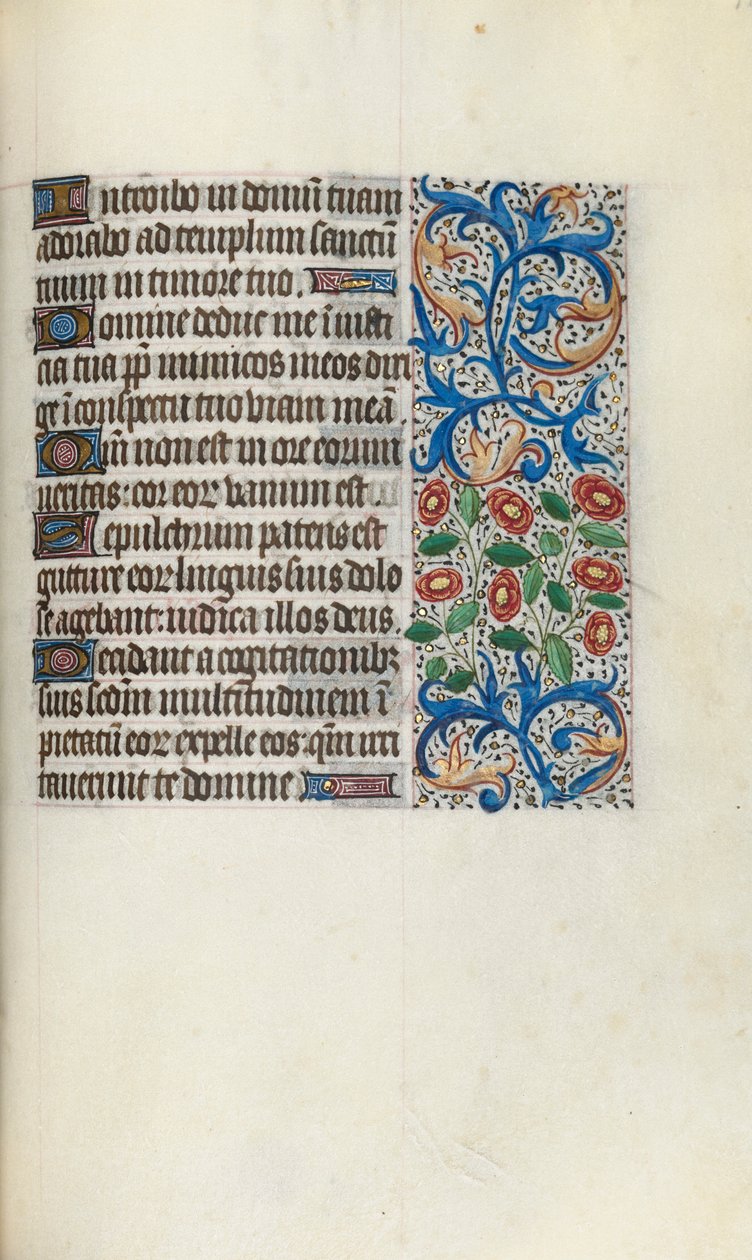 Introibo in domũ tuam
adorabo ad templum sanctũ
tuum in timore tuo.
Domine deduc me ĩ iusti
cia tua pp̃ inimicos meos diri
ge ĩ conspectu tuo viam meã
Qm̃ non est in ore eorum
veritas: cor eoꝝ vanum est
Sepulchrum patens est
gutture eoꝝ linguis suis dolo
se agebant: iudica illos deus.
Decidant a cogitationibꝫ
suis scdm̃ multitudinem ĩ
pietatũ eoꝝ expelle eos: qm̃ irri
taverunt te domine